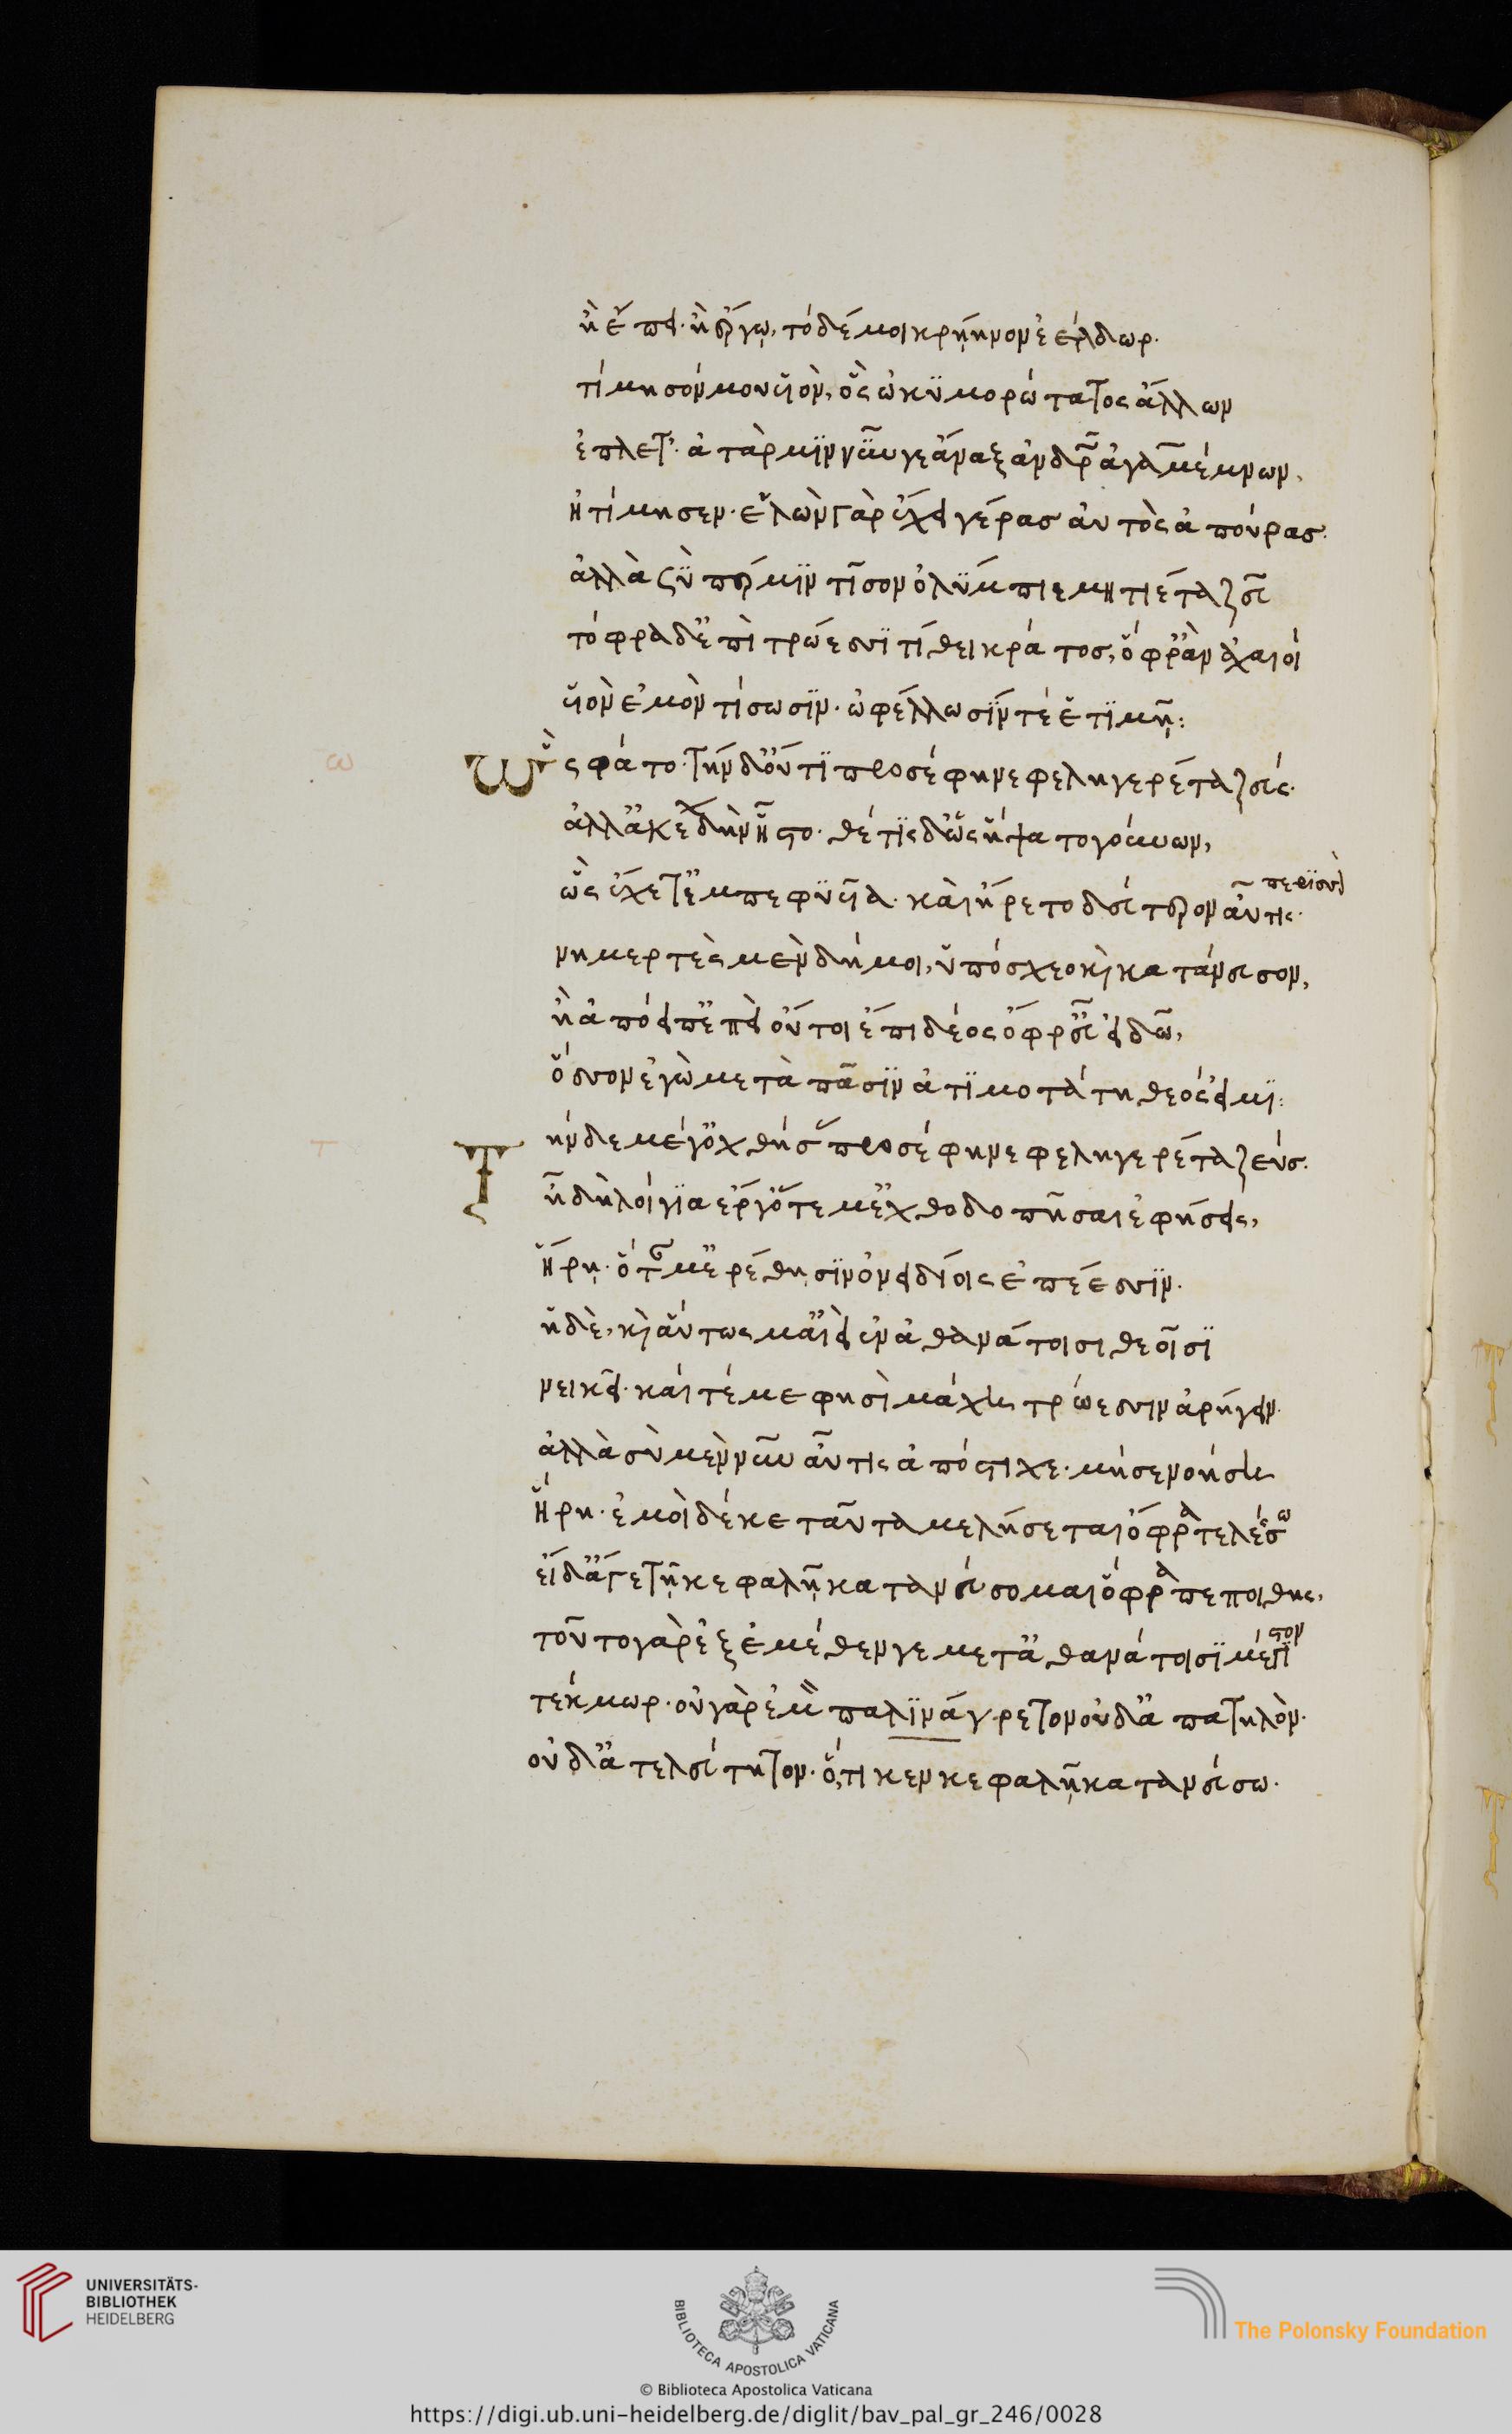 ἢ ἔπει· ἢ ἔργω, τόδέ μοι κρήηνον ἐέλδωρ·
τίμησόν μοι υἱὸν, ὃς ὠκυμορώτατος ἄλλων
ἔπλετ'· ἀτάρ μιν νῦν γε ἄναξ ἀνδρῶν ἀγαμέμνων,
ἠτίμησεν· ἑλὼν γὰρ ἔχει γέρας αὐτὸς ἀπούρας·
ἀλλὰ σύ πέρ μιν τῖσον ὀλύμπιε μητιέτα ζεῦ
τόφρα δ' ἐπὶ τρώεσσι τίθει κράτος, ὄφρ' ἂν ἀχαιοὶ
υἱὸν ἐμὸν τίσωσιν· ὀφέλλωσίν τέ ἑ τιμῆ:
ω
Ὣς φάτο· τὴν δ' οὔτι προσέφη νεφεληγερέτα ζεύς·
ἀλλ' ἀκέων δὴν ἧστο· θέτις δ' ὡς ἥψατο γούνων,
ὣς ἔχετ' ἐμπεφυυῖα· καὶ ἤρετο δεύτερον αὖτις·
νημερτὲς μὲν δή μοι, ὑπόσχεο καὶ κατάνευσον,
ἢ ἀπόειπ' ἐπεὶ οὔ τοι ἔπι δέος ὄφρ' εὖ εἰδῶ,
ὅσσον ἐγὼ μετὰ πᾶσιν ἀτιμοτάτη θεός εἰμι:
τ
Τὴν δὲ μέγ' ὀχθήσας προσέφη νεφεληγερέτα ζεύς·
ἦ δὴ λοίγια ἔργ' ὅτέ μ' ἐχθοδοπῆσαι ἐφήσεις,
ἥρη· ὅτ' ἄν μ' ἐρέθησιν ὀνειδίοις ἐπέεσσιν·
ἡ δὲ, καὶ αὔτως μ' αἰεὶ ἐν ἀθανάτοισι θεοῖσι
νεικεῖ· καί τέ με φησὶ μάχη τρώεσσιν ἀρήγειν·
ἀλλὰ σὺ μὲν νῦν αὖτις ἀπόστιχε· μή σε νοήση
ἥρη· ἐμοὶ δέ κε ταῦτα μελήσεται ὄφρα τελέσω
εἰ δ' ἄγε τοι κεφαλῆ κατανεύσομαι ὄφρα πεποίθης,
τοῦτο γὰρ ἐξ ἐμέθεν γε μετ' ἀθανάτοισι μέγιστον
τέκμωρ· οὐ γὰρ ἐμὸν παλινάγρετον οὐδ' ἀπατηλὸν·
οὐδ' ἀτελεύτητον· ὅ,τι κεν κεφαλῆ κατανεύσω·
UNIVERSITÄTS-
BIBLIOTHEK
HEIDELBERG
BIBLIOTECA APOSTOLICA VATICANA
The Polonsky Foundation
© Biblioteca Apostolica Vaticana
https://digi.ub.uni-heidelberg.de/diglit/bav_pal_gr_246/0028